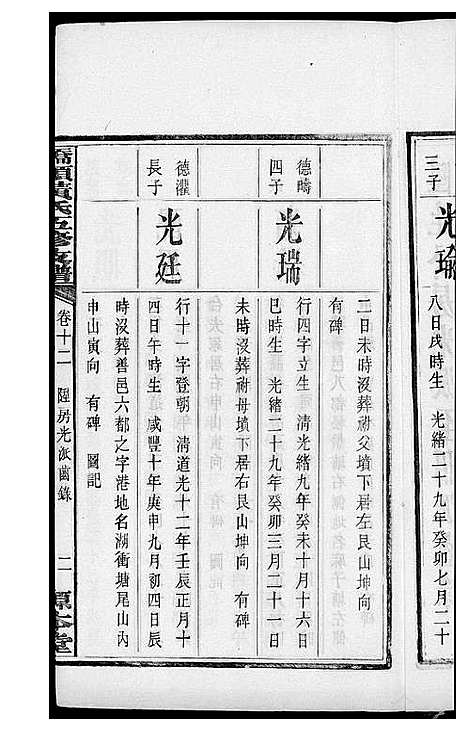 三子
光瑜
八日戌時生 光緒二十九年癸卯七月二十
二日未時沒葬祔父墳下居左艮山坤向
有碑
德疇
四子
光瑞
行四字立生 清光緒九年癸未十月十六日
巳時生 光緒二十九年癸卯三月二十一日
未時沒葬祔母墳下居右艮山坤向 有碑
德灌
長子
光廷
行十一字登朝 清道光十二年壬辰正月十
四日午時生 咸豐十年庚申九月初四日辰
時沒葬善邑六都之字港地名湖衝塘尾山內
申山寅向 有碑 圖記
橋頭黃氏五修支譜
卷十二
房光派齒錄
二
源本堂